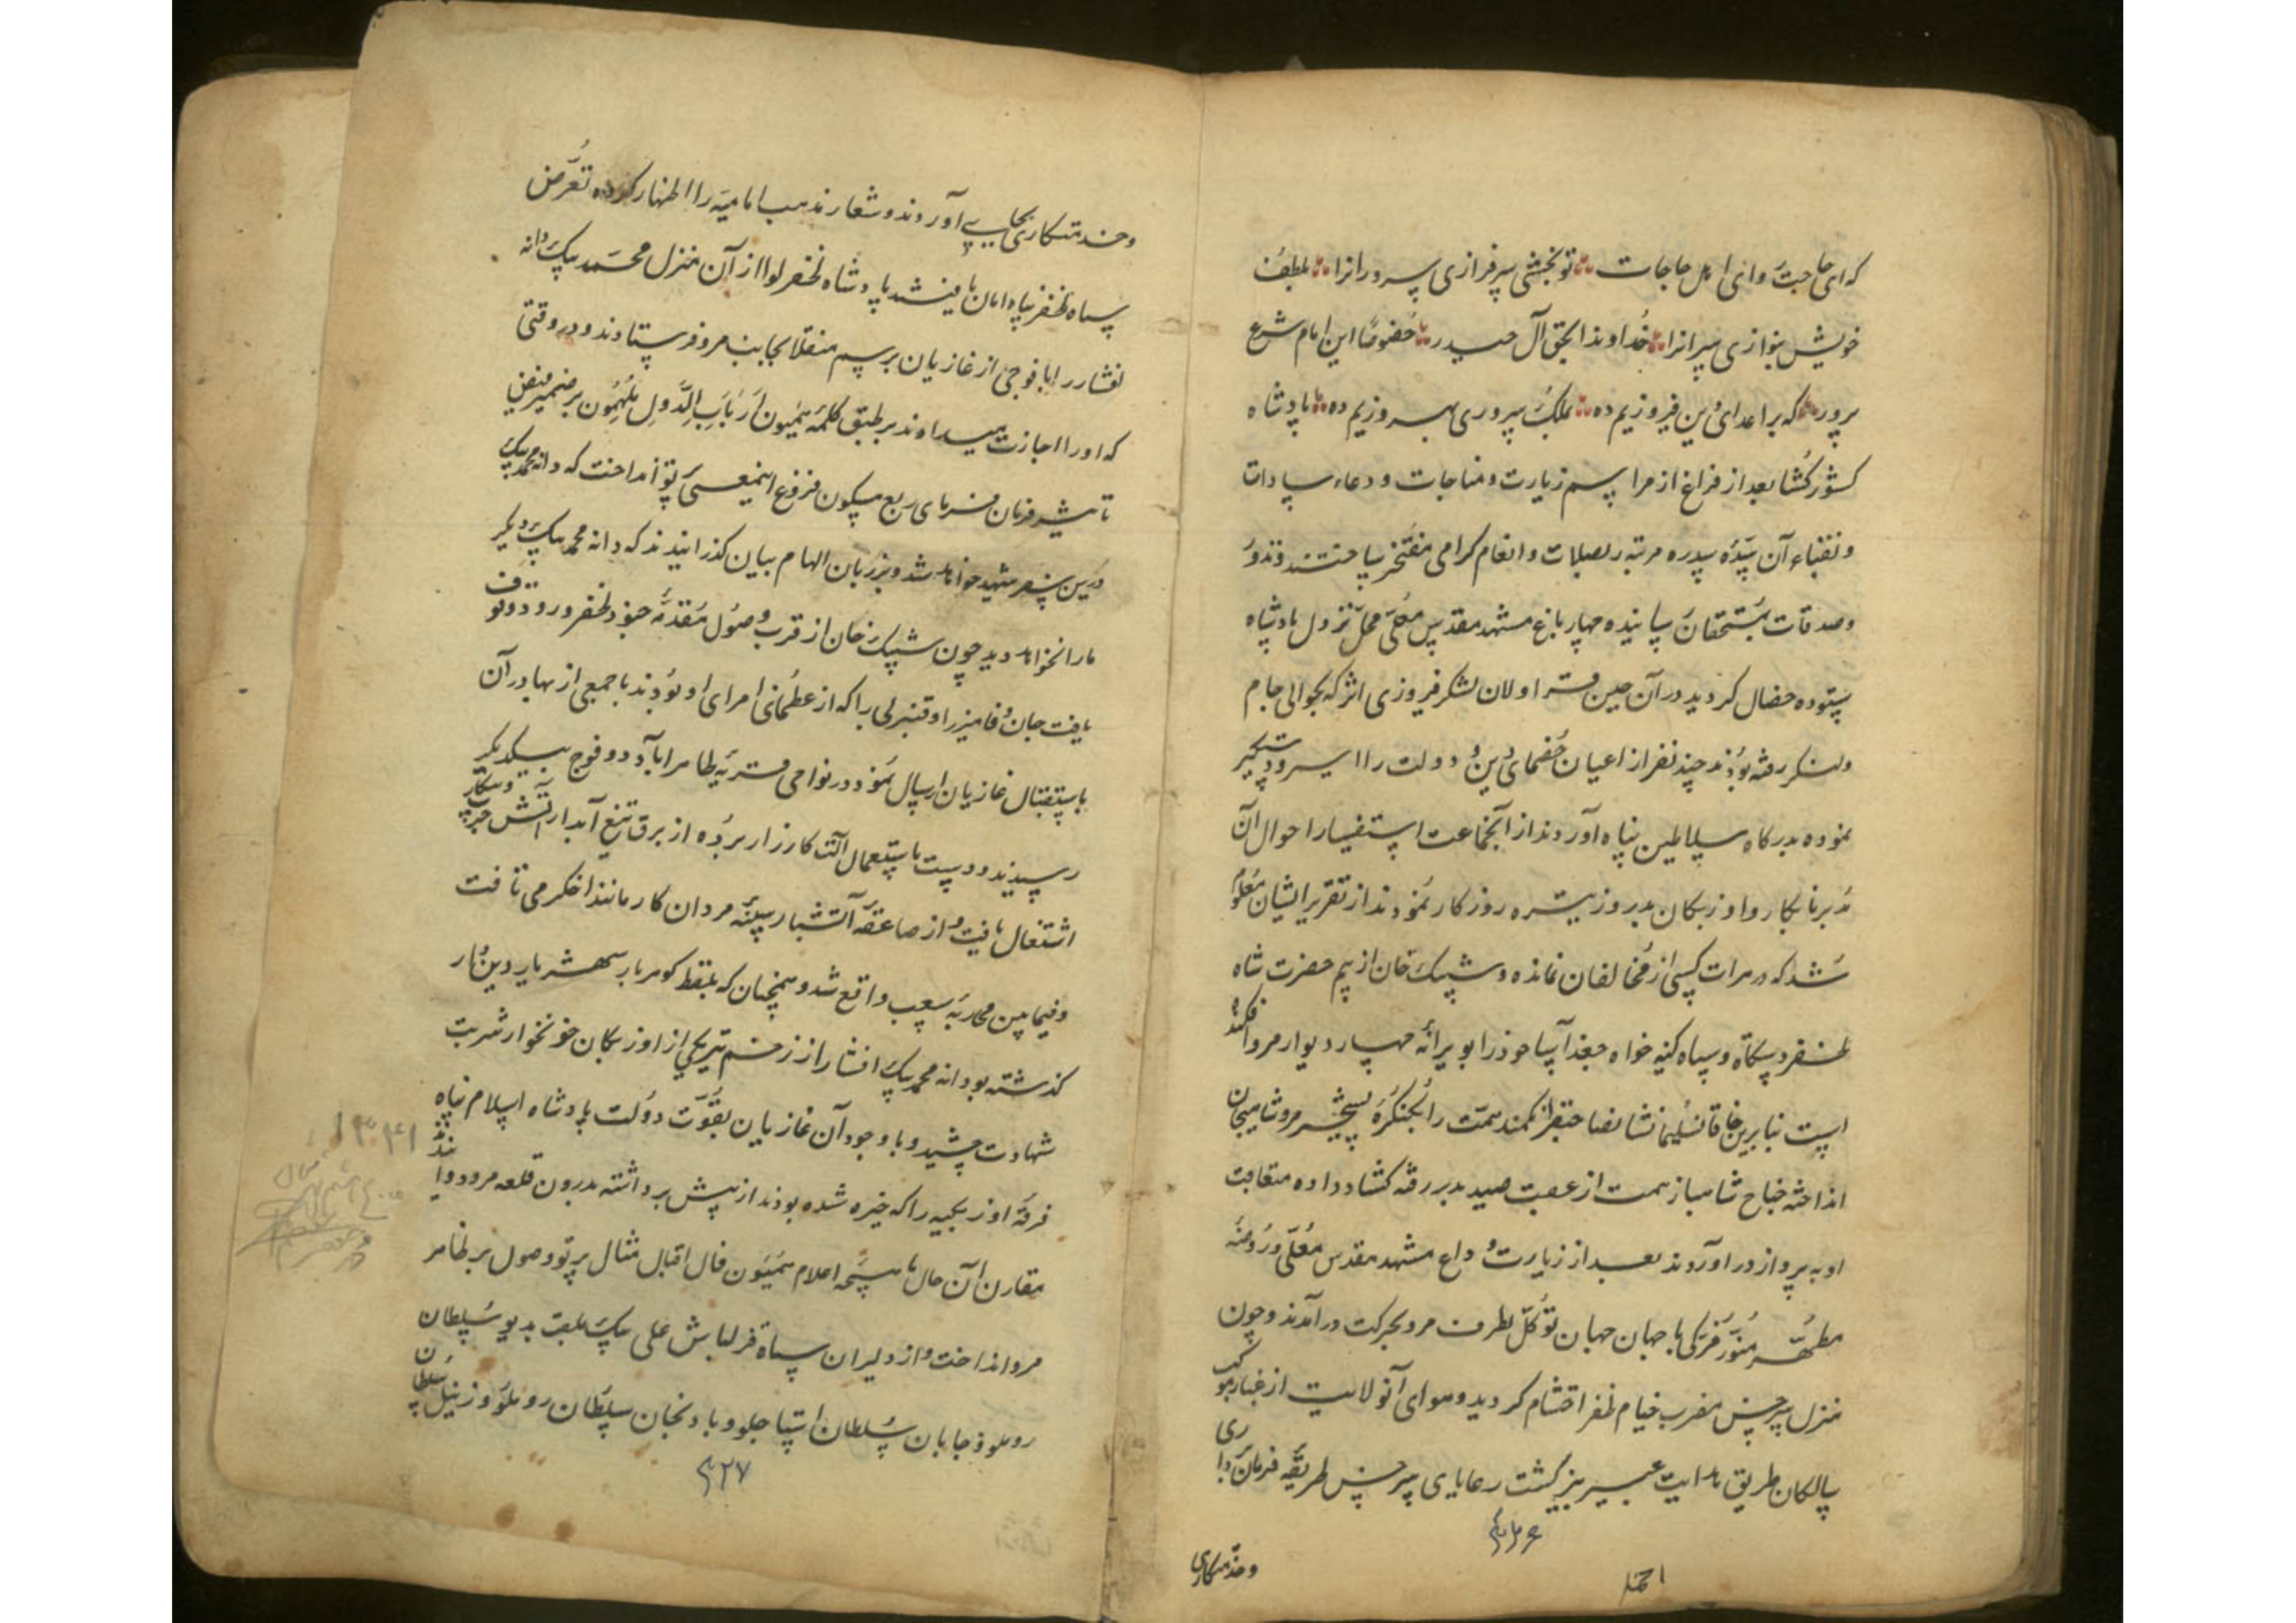 که ای حاجت روای اهل حاجات تو بخشی سرفرازی سرورانرا بلطف
خویش بنوازی سرانرا خداوندا بحق آل حیدر خصوصا این امام شرع
پرور که بر اعدای دین فیروزیم ده بملک سروری بهروزیم ده پادشاه
کشورکشا بعد از فراغ از مراسم زیارت و مناجات و دعاء سادات
و نقباء آن سده سدره مرتبه بصلات و انعام گرامی مفتخر ساختند و نذور
و صدقات بمستحقان رسانیده چهار باغ مشهد مقدس معلی محل نزول پادشاه
ستوده خصال گردید در آن حین قراولان لشکر فیروزی اثر که بحوالی جام
ولنکر رفته بودند چند نفر از اعیان خصمای دین و دولت را اسیر و دستگیر
نموده بدرگاه سلاطین پناه آوردند از آنجماعت استفسار احوال آن
مدبر نابکار و اوزبکان بدروز تیره روزگار نمودند از تقریر ایشان معلوم
شد که در هرات کسی از مخالفان نمانده و شیبک خان از بیم حضرت شاه
ظفر دستگاه و سپاه کینه خواه جغد آسا خود را بویرانه چهار دیوار مرو افکنده
است بنابرین خاقان سلیمانشان صاحبقران کمند همت را بکنگره تسخیر مرو شاهیجان
انداخته جناح شاهباز همت از عقب صید بدر رفته گشاد داده متعاقب
او به پرواز در آوردند بعد از زیارت وداع مشهد مقدس معلی و روضه
مطهر منور مزکی با جهان جهان توکل بطرف مرو بحرکت در آمدند و چون
منزل سرخس مضرب خیام ظفر احتشام گردید و هوای آنولایت از غبار موکب
سالکان طریق هدایت عبیر بیز گشت رعایای سرخس طریقه فرمان برداری
۴۲۶
وخدمتکاری
وخدمتکاری بجای آوردند و شعار مذهب امامیه را اظهار کرده از تعرض
سپاه ظفر پناه امان یافتند پادشاه ظفر لوا از آن منزل محمد بیک دانه
افشار را با فوجی از غازیان برسم منقلا بجانب مرو فرستادند و در وقتی
که او را اجازت میدادند بر طبق کلمه میمون ارباب الدول ملهمون بر ضمیر فیض
تاثیر فرمان فرمای ربع مسکون فروغ اینمعنی پرتو انداخت که دانه محمد بیک
درین سفر شهید خواهد شد و بر زبان الهام بیان گذرانیدند که دانه محمد بیک دیگر
ما را نخواهد دید چون شیبک خان از قرب وصول مقدمه جنود ظفر ورود وقوف
یافت جان وفا میرزا و قنبر بی را که از عظمای امرای او بودند با جمعی از بهادران
باستقبال غازیان ارسال نمود و در نواحی قریه طاهراباد دو فوج بیکدیگر
رسیدند و دست باستعمال آلت کارزار برده از برق تیغ آبدار آتش حرب و پیکار
اشتعال یافت و از صاعقه آتشبار سینه مردان کار مانند اخگر می تافت
و فیمابین محاربه صعب واقع شد و همچنان که بلفظ گوهربار شهریار دین دار
گذشته بود دانه محمد بیک افشار از زخم تیر یکی از اوزبکان خونخوار شربت
شهادت چشید و با وجود آن غازیان بقوت دولت پادشاه اسلام پناه
فرقه اوزبکیه را که خیره شده بودند از پیش برداشته بدرون قلعه مرو دوانیدند
مقارن آن حال ماهچه اعلام همیون فال اقبال مثال پرتو وصول بر ظاهر
مرو انداخت و از دلیران سپاه قزلباش علی بیک ملقب بدیو سلطان
روملو و چایان سلطان استاجلو و بادنجان سلطان روملو و زینل سلطان
۴۲۷